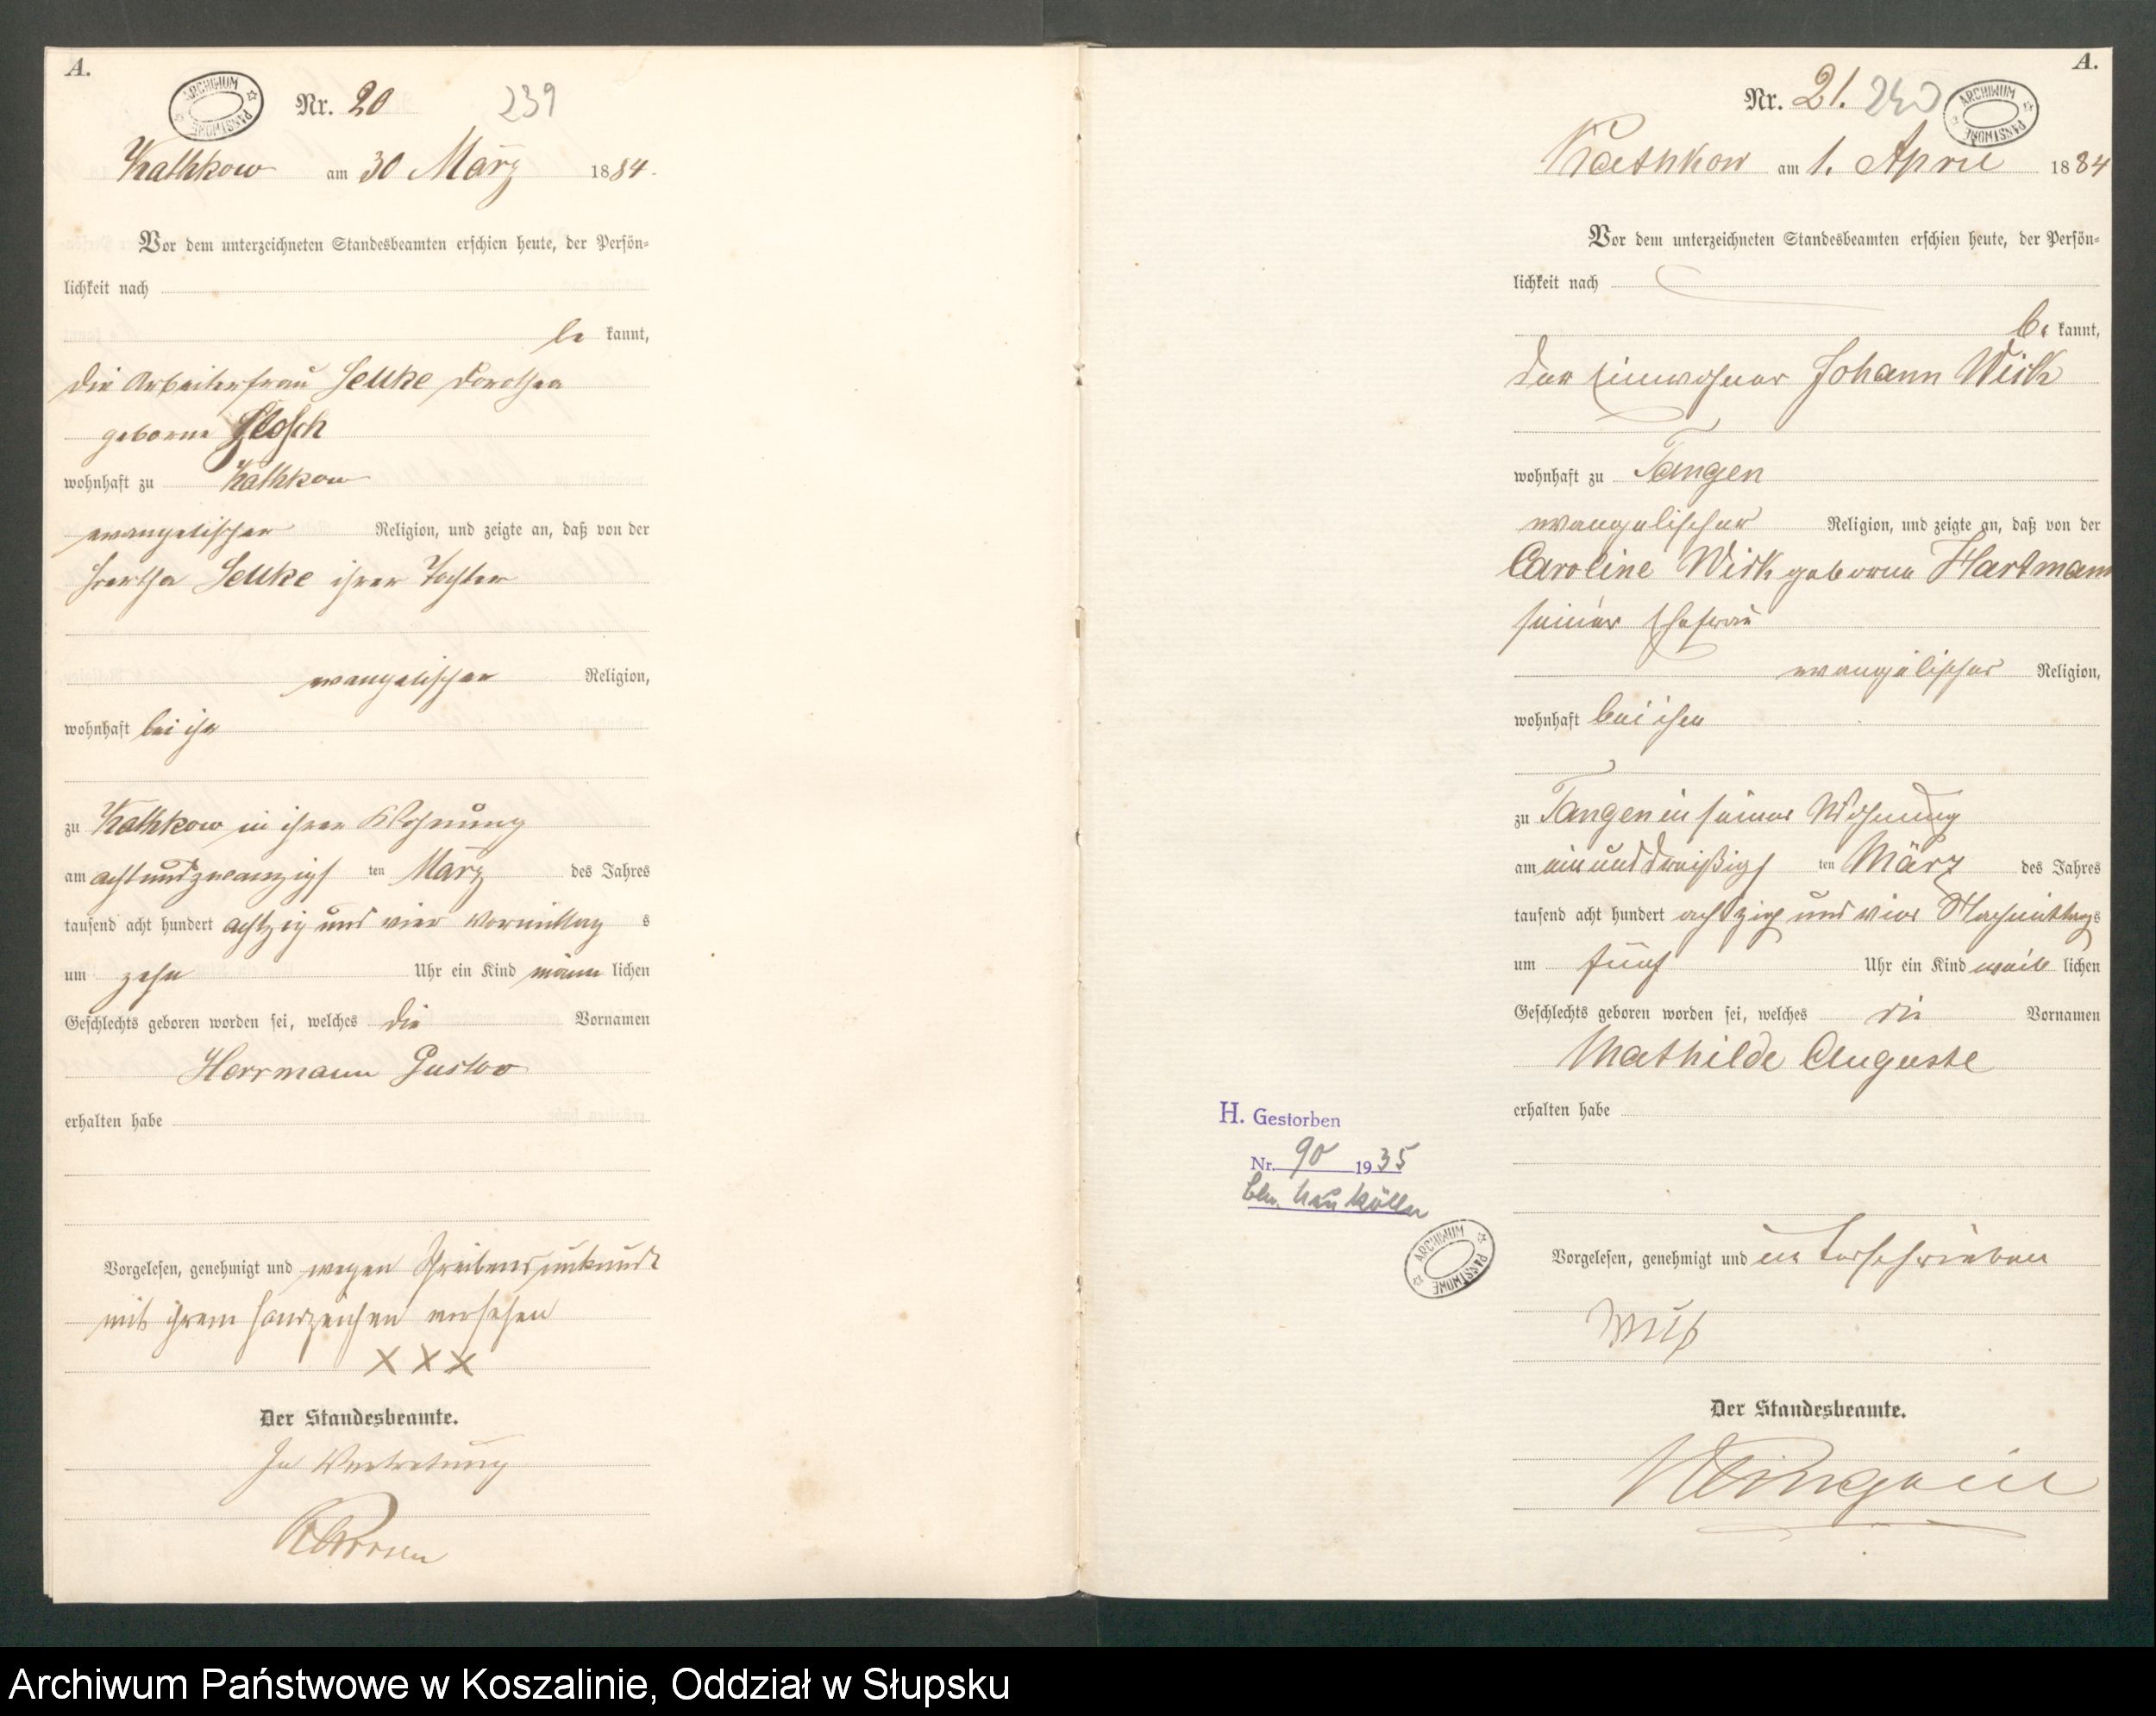 A.
ARCHIWUM PAŃSTWOWE
Nr. 20 239
Kathkow am 30 März 1884.
Vor dem unterzeichneten Standesbeamten erschien heute, der Persön-
lichkeit nach
be kannt,
die Arbeiterfrau Selke Dorothea
geborne
wohnhaft zu Kathkow
evangelischer Religion, und zeigte an, daß von der
Selke ihrer Tochter
evangelischer Religion,
wohnhaft bei ihr
zu Kathkow in ihrer Wohnung
am achtundzwanzigs ten März des Jahres
tausend acht hundert achtzig und vier Vormittag s
um zehn Uhr ein Kind männ lichen
Geschlechts geboren worden sei, welches die Vornamen
Herrmann Gustav
erhalten habe
Vorgelesen, genehmigt und wegen Schreibensunkunde
mit ihrem Handzeichen versehen
XXX
Der Standesbeamte.
In Vertretung
A.
Nr. 21. 240
ARCHIWUM PAŃSTWOWE
Kathkow am 1. April 1884
Vor dem unterzeichneten Standesbeamten erschien heute, der Persön-
lichkeit nach
be kannt,
der Einwohner Johann Wick
wohnhaft zu Tangen
evangelischer Religion, und zeigte an, daß von der
Caroline Wick geborne Hartmann
seiner Ehefrau
evangelischer Religion,
wohnhaft bei ihm
zu Tangen in seiner Wohnung
am einunddreißigs ten März des Jahres
tausend acht hundert achtzig und vier Nachmittags
um fünf Uhr ein Kind weib lichen
Geschlechts geboren worden sei, welches die Vornamen
Mathilde Auguste
erhalten habe
H. Gestorben
Nr. 90 1935
Bln. Neukölln
ARCHIWUM PAŃSTWOWE
Vorgelesen, genehmigt und unterschrieben
Der Standesbeamte.
Archiwum Państwowe w Koszalinie, Oddział w Słupsku